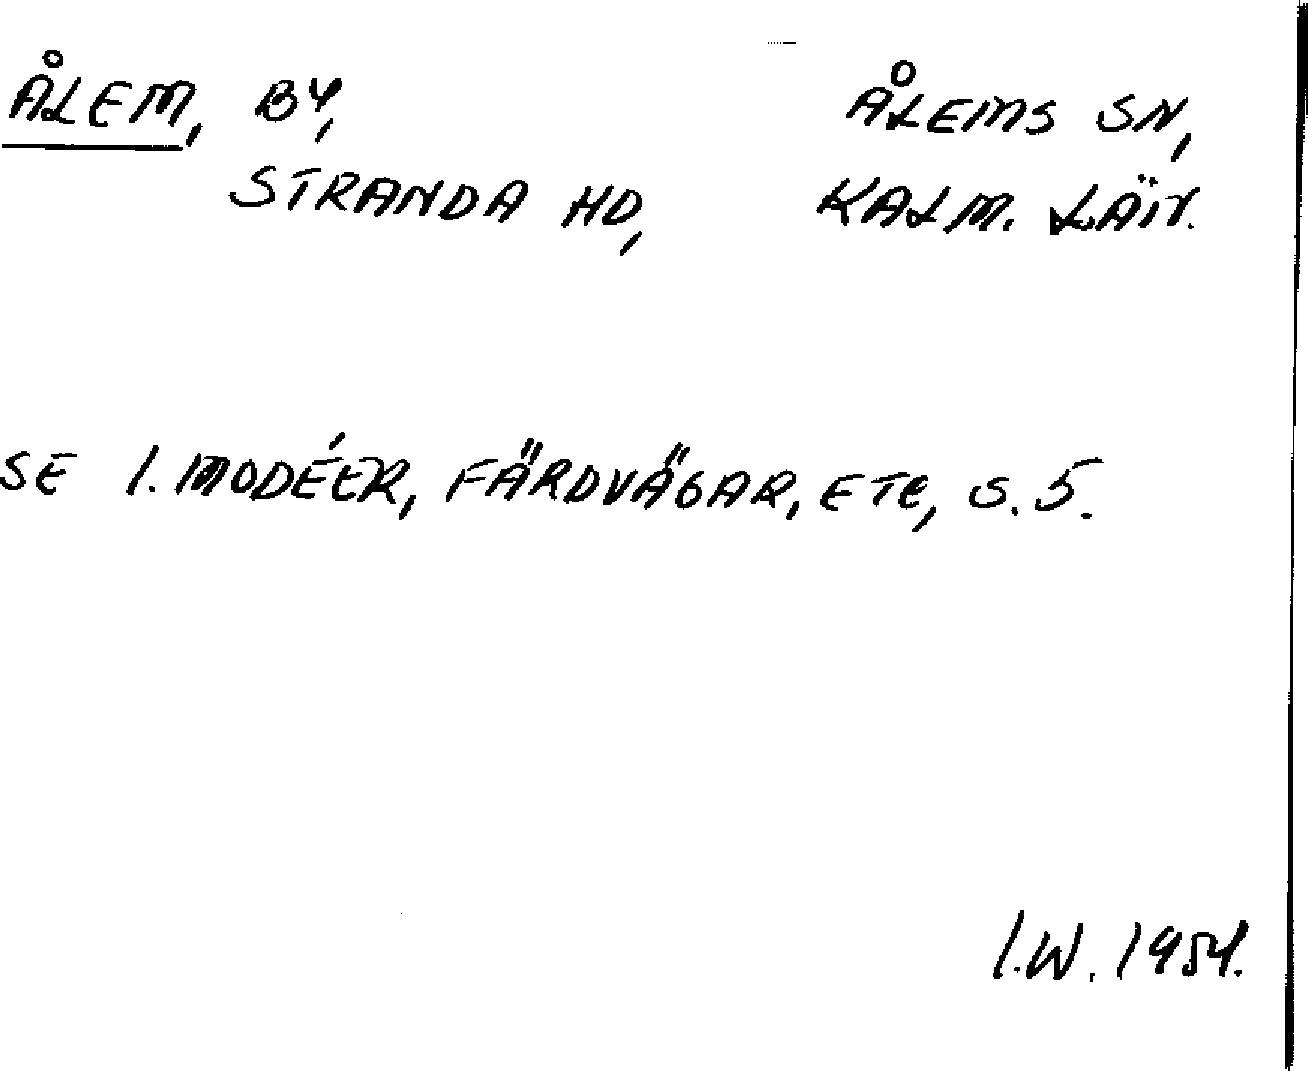 ÅLEM, BY, ÅLEMS SN,
STRANDA HD, KALM. LÄN.
SE I. MODÉER, FÄRDVÄGAR, ETC, S. 5.
I.W. 1954.